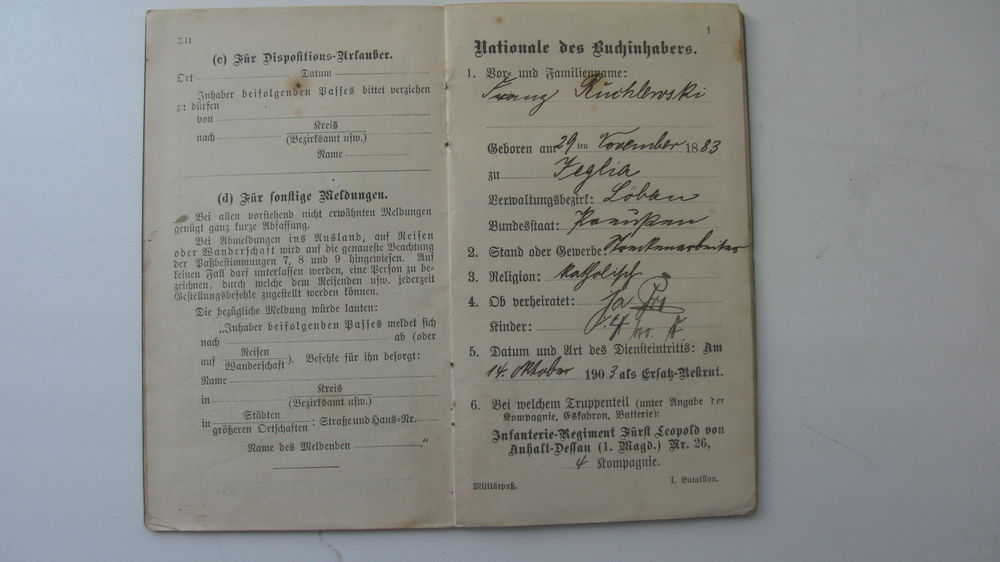 XII
(c) Für Dispositions-Urlauber.
Ort Datum
Inhaber beifolgenden Passes bittet verziehen
zu dürfen
von
nach Kreis
(Bezirksamt usw.)
Name
(d) Für sonstige Meldungen.
Bei allen vorstehend nicht erwähnten Meldungen
genügt ganz kurze Abfassung.
Bei Abmeldungen ins Ausland, auf Reisen
oder Wanderschaft wird auf die genaueste Beachtung
der Paßbestimmungen 7, 8 und 9 hingewiesen. Auf
keinen Fall darf unterlassen werden, eine Person zu be-
zeichnen, durch welche dem Reisenden usw. jederzeit
Gestellungsbefehle zugestellt werden können.
Die bezügliche Meldung würde lauten:
„Inhaber beifolgenden Passes meldet sich
nach ab (oder
auf Reisen
Wanderschaft). Befehle für ihn besorgt:
Name
in Kreis
(Bezirksamt usw.)
in Städten
größeren Ortschaften: Straße und Haus-Nr.
Name des Meldenden ."
1
Nationale des Buchinhabers.
1. Vor- und Familienname:
Franz Ruchlewski
Geboren am 29 ten November 1883
zu Jeglia
Verwaltungsbezirk: Löbau
Bundesstaat: Preußen
2. Stand oder Gewerbe:
3. Religion: katholisch
4. Ob verheiratet: ja
Kinder: 4
5. Datum und Art des Diensteintritts: Am
14. Oktober 1903 als Ersatz-Rekrut.
6. Bei welchem Truppenteil (unter Angabe der
Kompagnie, Eskadron, Batterie):
Infanterie-Regiment Fürst Leopold von
Anhalt-Dessau (1. Magd.) Nr. 26,
4 Kompagnie.
Militärpaß.
I. Bataillon.